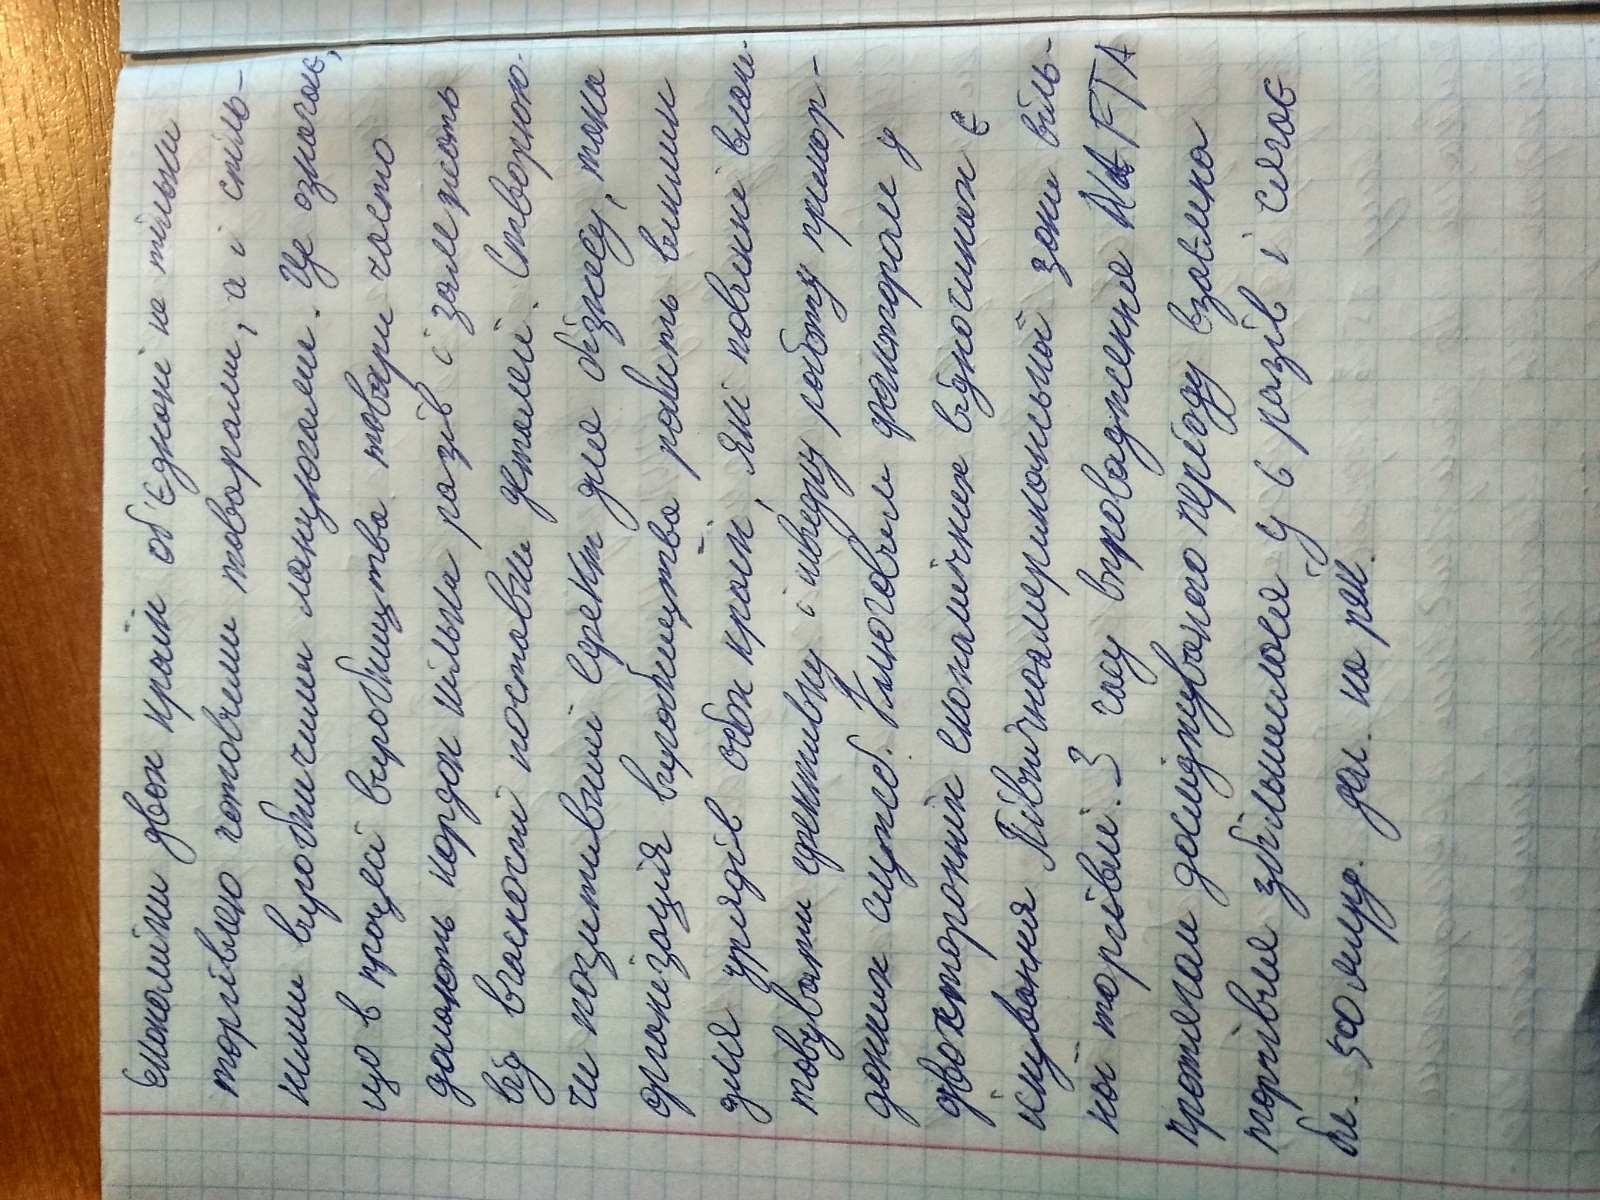 Економіки двох країн об'єднані не тільки
торгівлею готовими товарами, а і спіль-
ними виробничими ланцюгами. Це означає,
що в процесі виробництва товари часто
долають кордон кілька разів і залежать
від вчасності поставки деталей. Створюю-
чи позитивний ефект для бізнесу, така
організація виробництва робить виклик
для урядів обох країн, які повинні влаш-
товувати ефективну і швидку роботу прикор-
донних служб. Ключовим фактором у
двосторонніх економічних відносинах є
існування Північноамериканської зони віль-
ної торгівлі. З часу впровадження NAFTA
протягом досліджуваного періоду взаємна
торгівля збільшилася у 6 разів і сягає
500 млрд. дол. на рік.